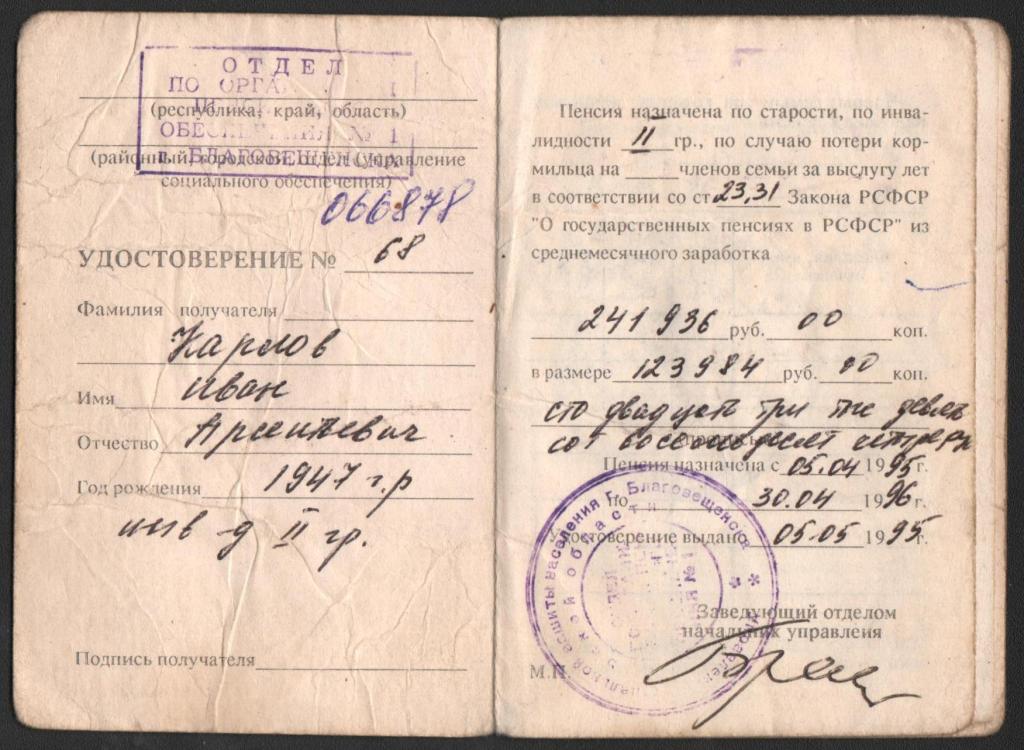 ОТДЕЛ
ПО ОРГА
(республика, край, область)
ОБЕСПЕЧЕНИЯ № 1
г. БЛАГОВЕЩЕНСКА
(районный, городской отдел (управление
социального обеспечения)
066878
УДОСТОВЕРЕНИЕ № 68
Фамилия получателя
Карлов
Имя Иван
Отчество Арсентьевич
Год рождения 1947 г.р
инв д II гр.
Подпись получателя
Пенсия назначена по старости, по инва-
лидности II гр., по случаю потери кор-
мильца на членов семьи за выслугу лет
в соответствии со ст 23,31 Закона РСФСР
"О государственных пенсиях в РСФСР" из
среднемесячного заработка
241936 руб. 00 коп.
в размере 123984 руб. 00 коп.
сто двадцать три тыс девять
сот восемьдесят четыре
Пенсия назначена с 05.04 1995г.
по 30.04 1996г.
Удостоверение выдано 05.05 1995г.
Заведующий отделом
начальник управлеия
М.П.
защиты населения г. Благовещенска
ской области